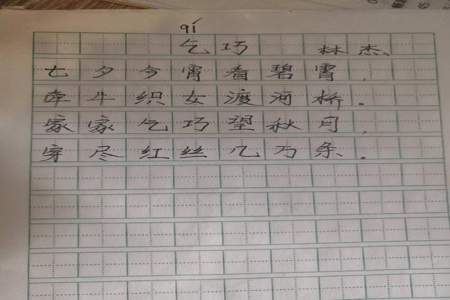 qǐ
乞巧 林杰
七夕今宵看碧霄,
牵牛织女渡河桥.
家家乞巧望秋月,
穿尽红丝几万条.